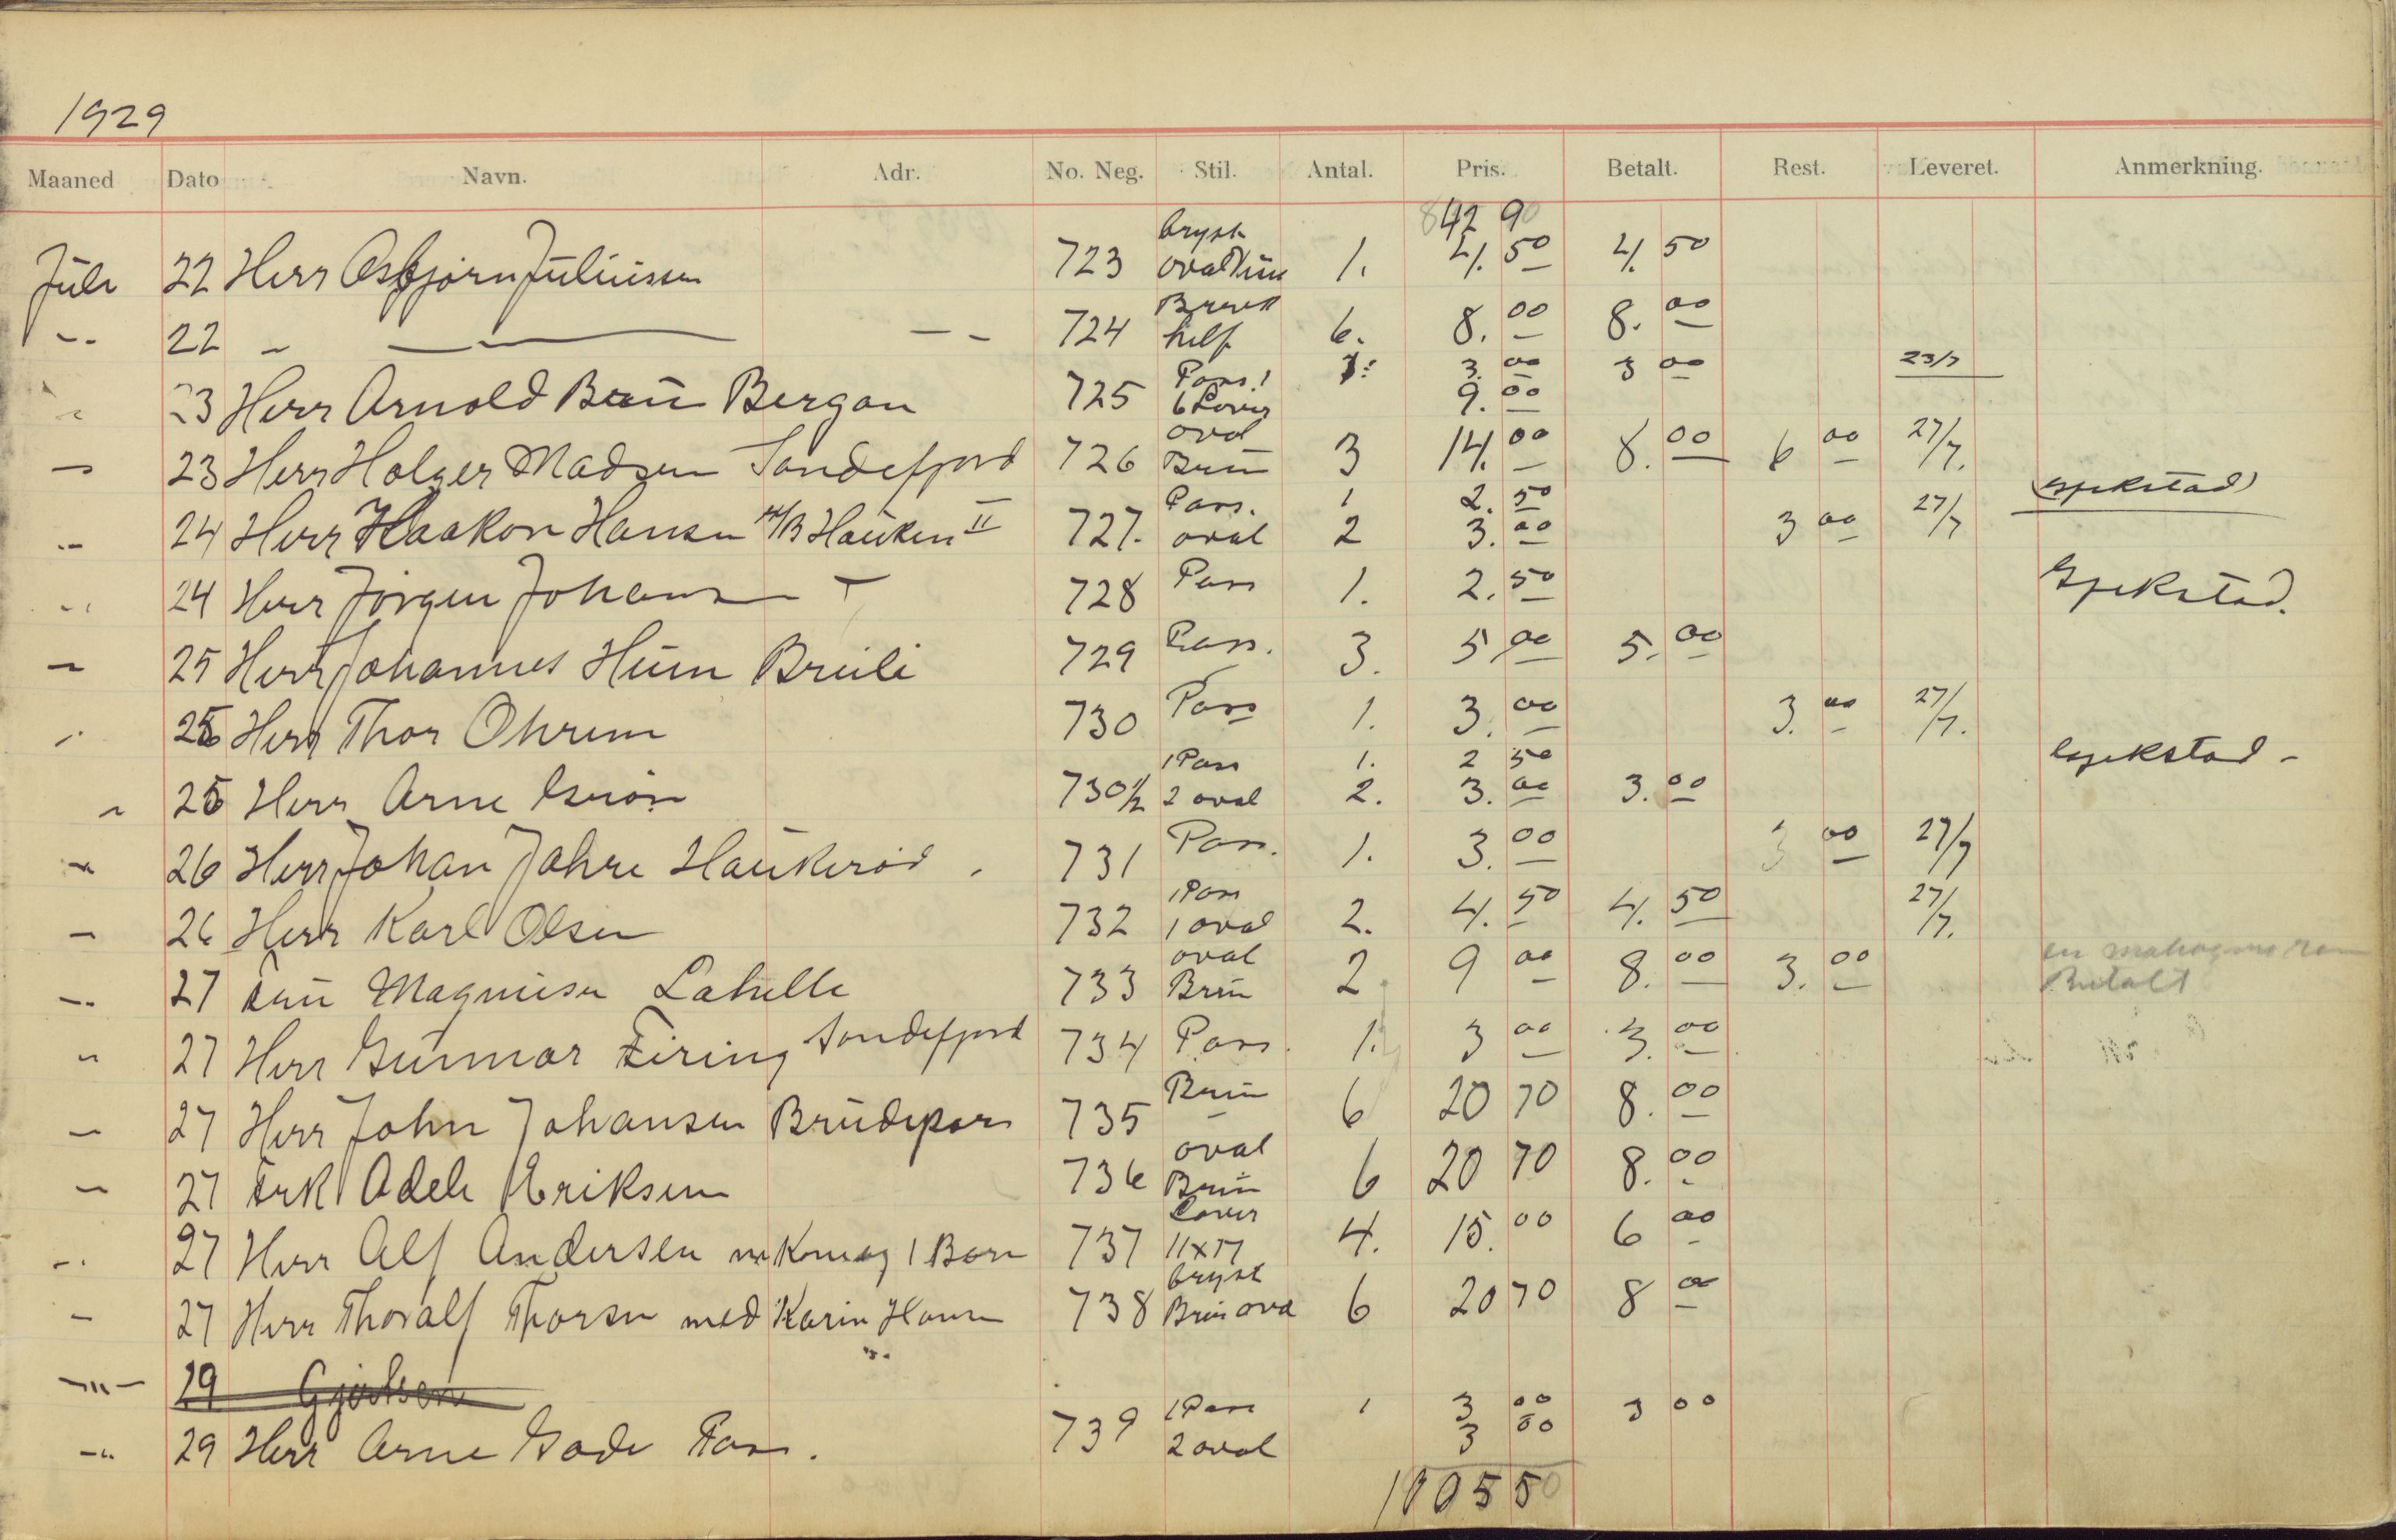 1929
Maaned Dato Navn. Adr. No. Neg. Stil. Antal. Pris. Betalt. Rest. Leveret. Anmerkning.
842 90
Juli 22 Herr Asbjörn Juliussen 723 bryst oval 1. 4. 50 4. 50
22 724 6. 8. 00 8. 00
23 Herr Arnold Bergan 725 Pass 1 1 3. 00 3 00 23/7
6 Cover 9. 00
23 Herr Holger Madsen Sandefjord 726 oval Brun 3 14. 00 8. 00 6 00 27/7.
24 Herr Haakon Hansen H/B Hauken II 727. Pass. 1 2. 50 Gjekstad
oval 2 3. 00 3 00 27/7
24 Herr Jörgen Johansen 728 Pass 1. 2. 50 Gjekstad.
25 Herr Johannes Hum 729 Pass. 3. 5. 00 5. 00
Herr Thor Ohrem 730 Pass 1. 3. 00 3. 00 27/7.
Herr Arne 730½ 1 Pass 1. 2 50 Gjekstad -
2 oval 2. 3. 00 3. 00
26 Herr Johan Jahre Haukeröd. 731 Pass. 1. 3. 00 3 00 27/7
26 Herr Karl Olsen 732 1 Pass 1 oval 2. 4. 50 4. 50 27/7.
27 Fru Magnusen Lahelle 733 oval Brun 2 9 00 8. 00 3. 00 en mahogni ram Betalt
27 Herr Gunnar Firing Sandefjord 734 Pass. 1. 3 00 3. 00
27 Herr John Johansen Brudepar 735 Brun 6 20 70 8. 00
27 Frk Adele Eriksen 736 oval Brun 6 20 70 8. 00
27 Herr Alf Andersen m Kone og 1 Barn 737 Cover 11x17 4. 15. 00 6 00
27 Herr Thoralf Thorsen med Karin Hansen 738 bryst Brun oval 6 20 70 8 00
29
29 Herr Arne Gade Pass. 739 1 Pass 1 3 00 3 00
2 oval 3 00
1005 50